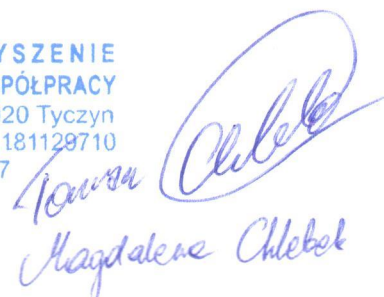 YSZENIE
PÓŁPRACY
020 Tyczyn
181129710
7
Chlebek
Magdalena Chlebek